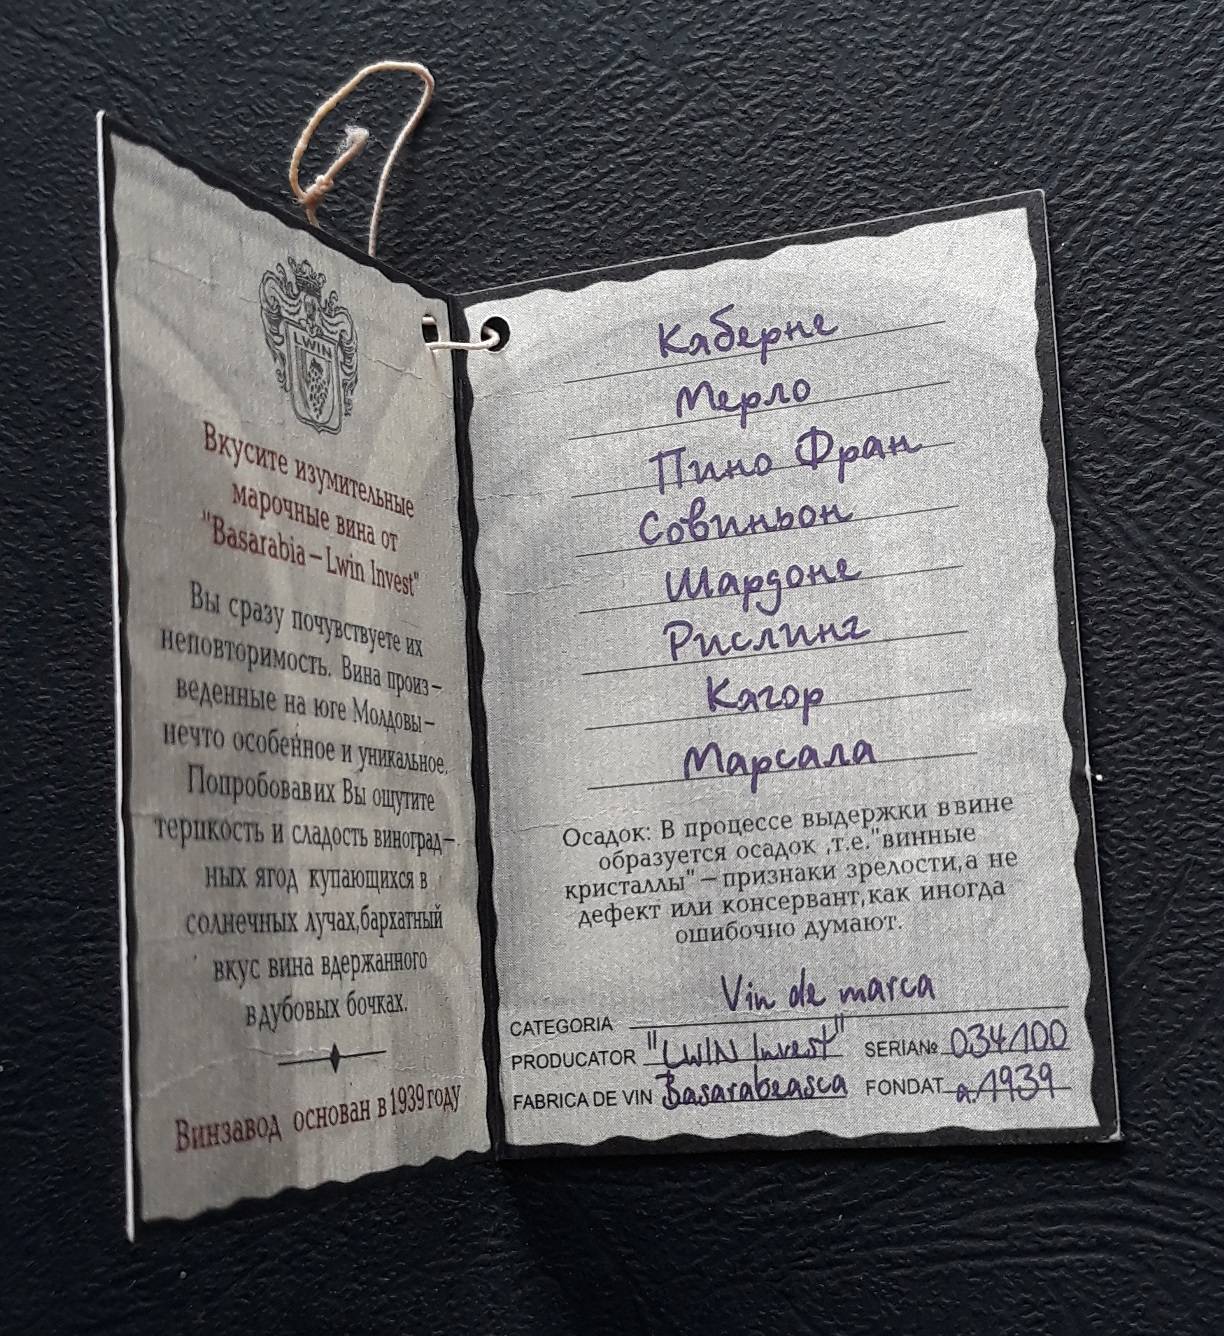 LWIN
Вкусите изумительные
марочные вина от
"Basarabia – Lwin Invest"
Вы сразу почувствуете их
неповторимость. Вина произ–
веденные на юге Молдовы–
нечто особенное и уникальное.
Попробовав их Вы ощутите
терпкость и сладость виноград–
ных ягод купающихся в
солнечных лучах,бархатный
вкус вина вдержанного
в дубовых бочках.
Винзавод основан в 1939 году
Каберне
Мерло
Пино Фран
Совиньон
Шардоне
Рислинг
Кагор
Марсала
Осадок: В процессе выдержки в вине
образуется осадок ,т.е."винные
кристаллы" – признаки зрелости,а не
дефект или консервант,как иногда
ошибочно думают.
CATEGORIA Vin de marca
PRODUCATOR "LWIN Invest" SERIA№ 034/100
FABRICA DE VIN Basarabeasca FONDAT a. 1939